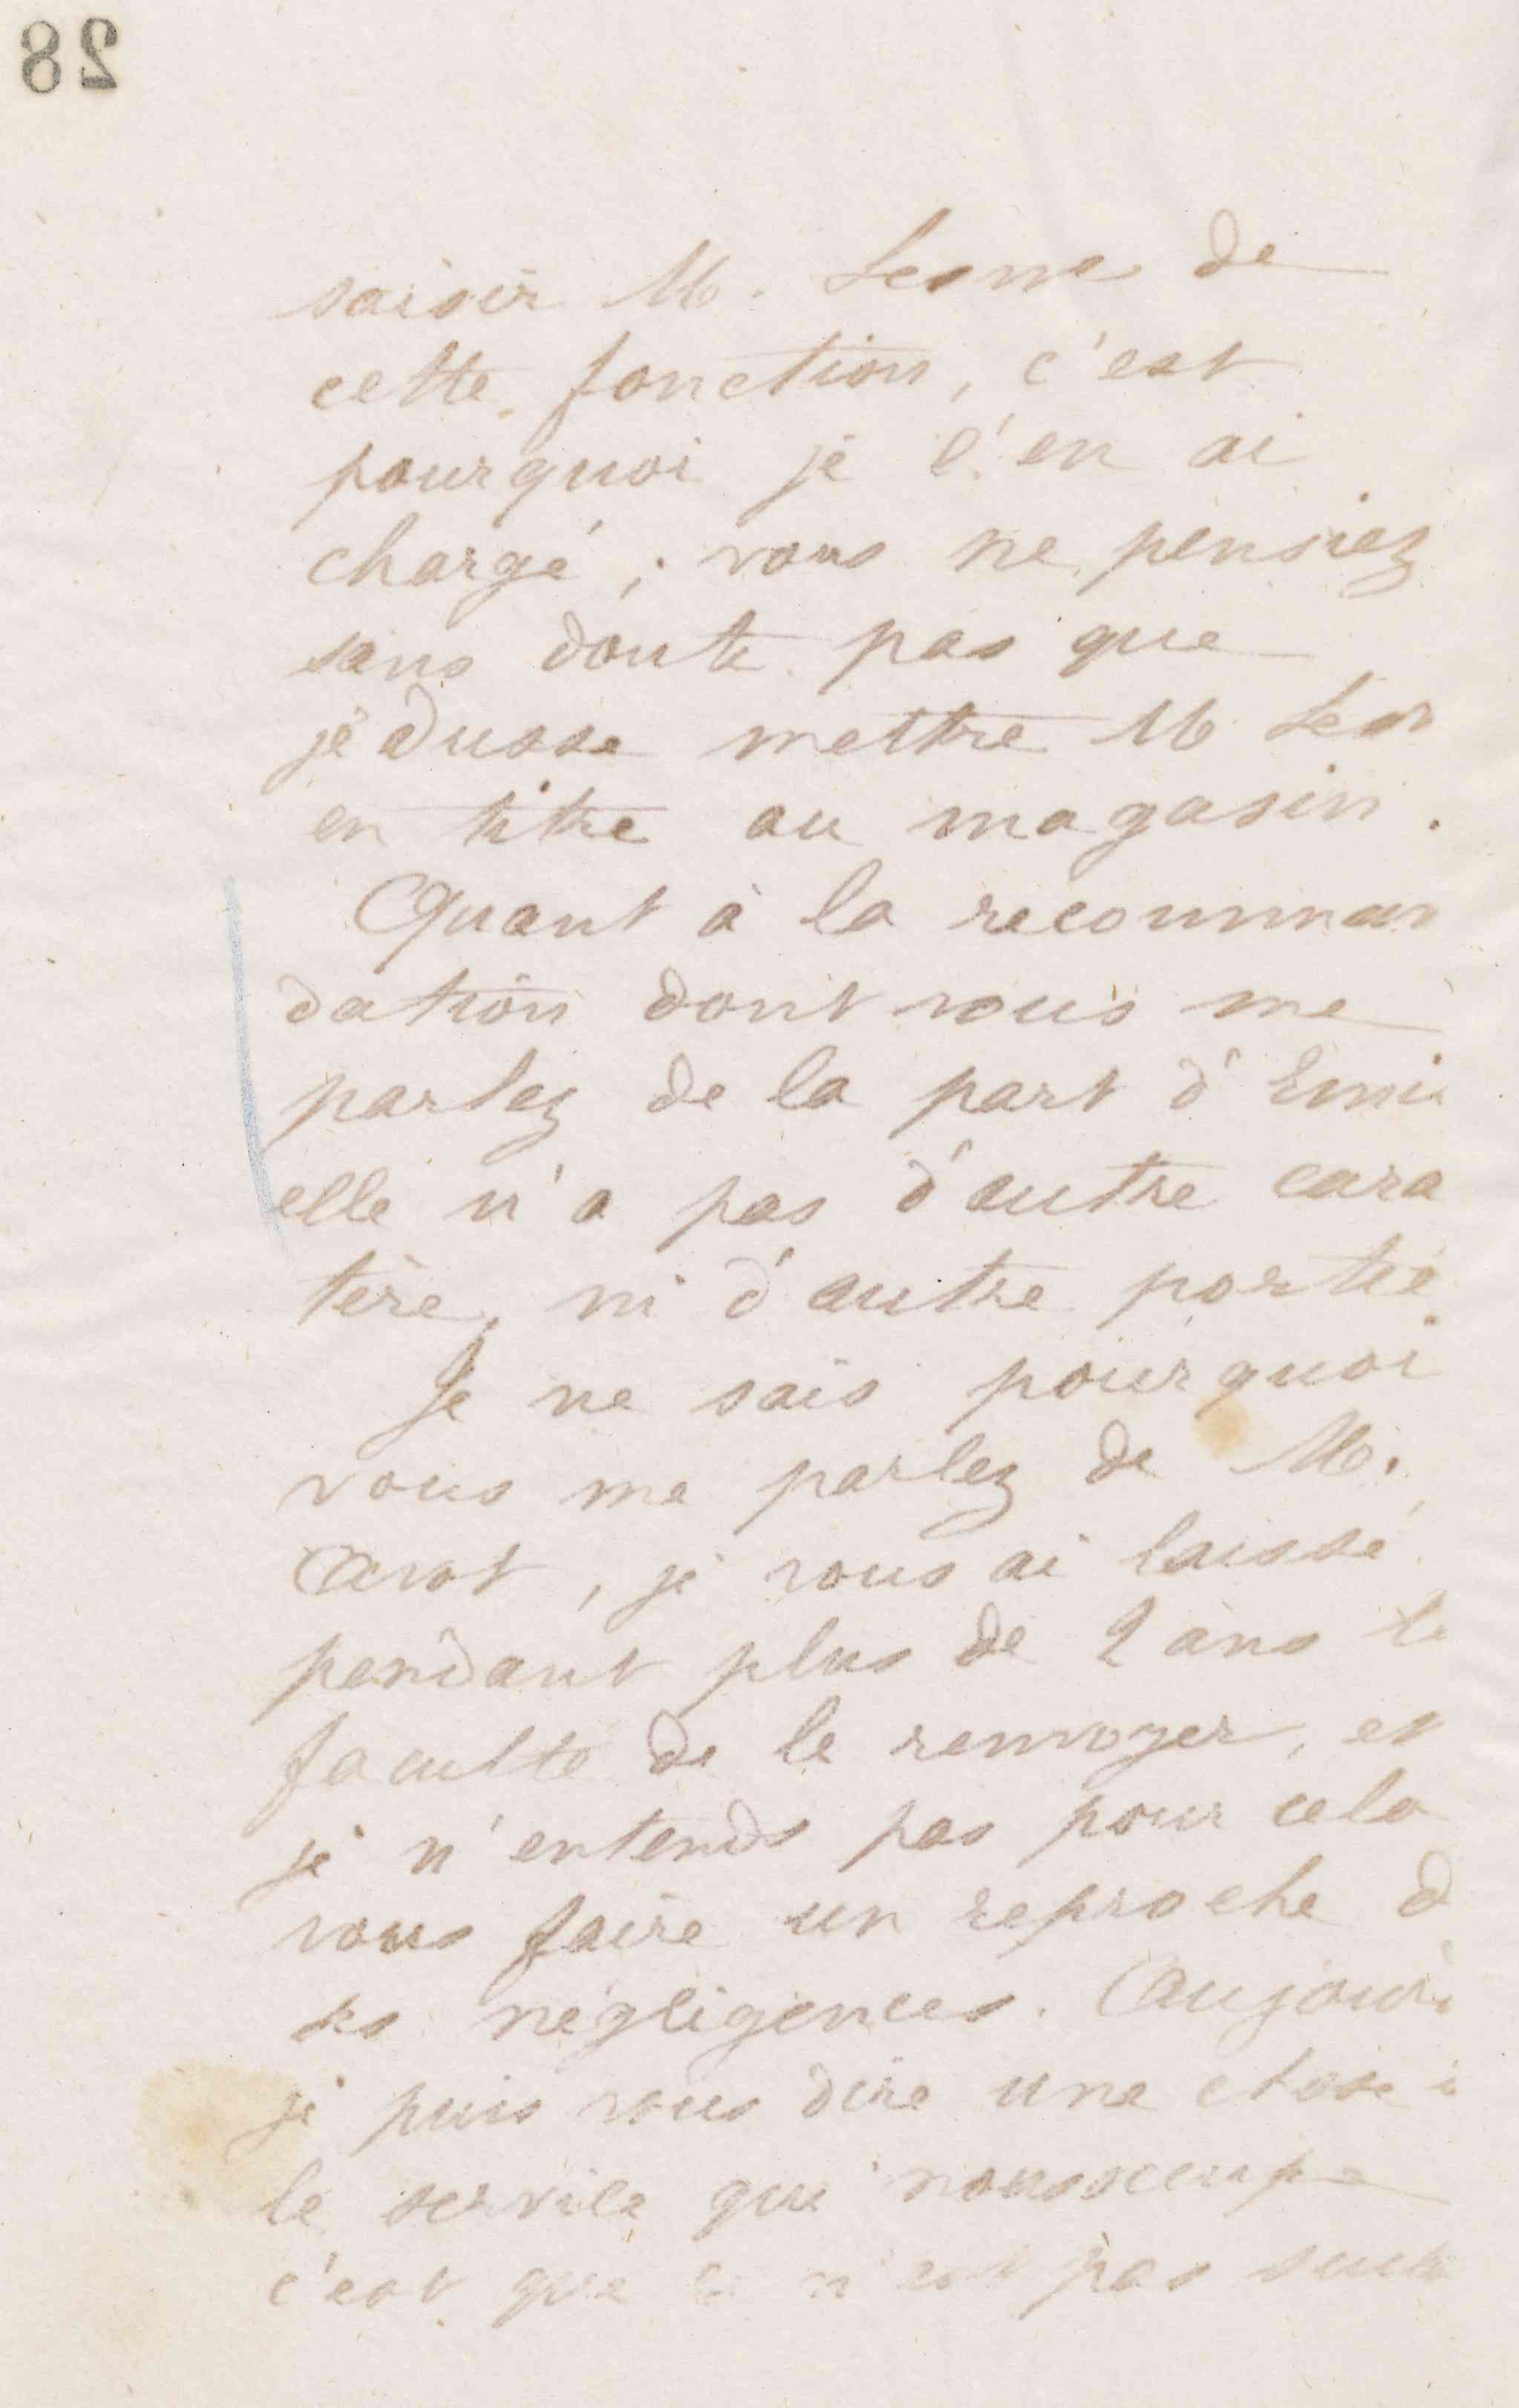 28
saisir M. Lesme de
cette fonction, c'est
pourquoi je l'en ai
chargé; vous ne pensiez
sans doute pas que
je dusse mettre M Les
en titre au magasin.
Quant à la recomman
dation dont vous me
parlez de la part d'Emi
elle n'a pas d'autre cara
tère, ni d'autre portée
Je ne sais pourquoi
vous me parlez de M.
Carot, je vous ai laissé
pendant plus de 2 ans la
faculté de le renvoyer, et
je n'entends pas pour cela
vous faire un reproche d
ses négligences. Aujourd
je puis vous dire une chose
le service qui nous occupe
c'est que n'est pas seule